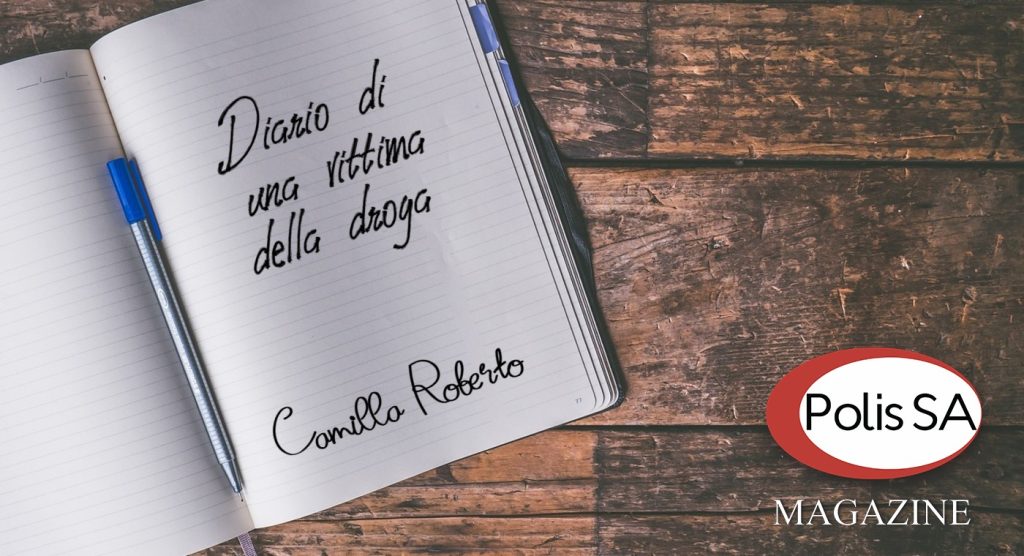 Diario di
una vittima
della droga
Camilla Roberto
Polis SA
MAGAZINE